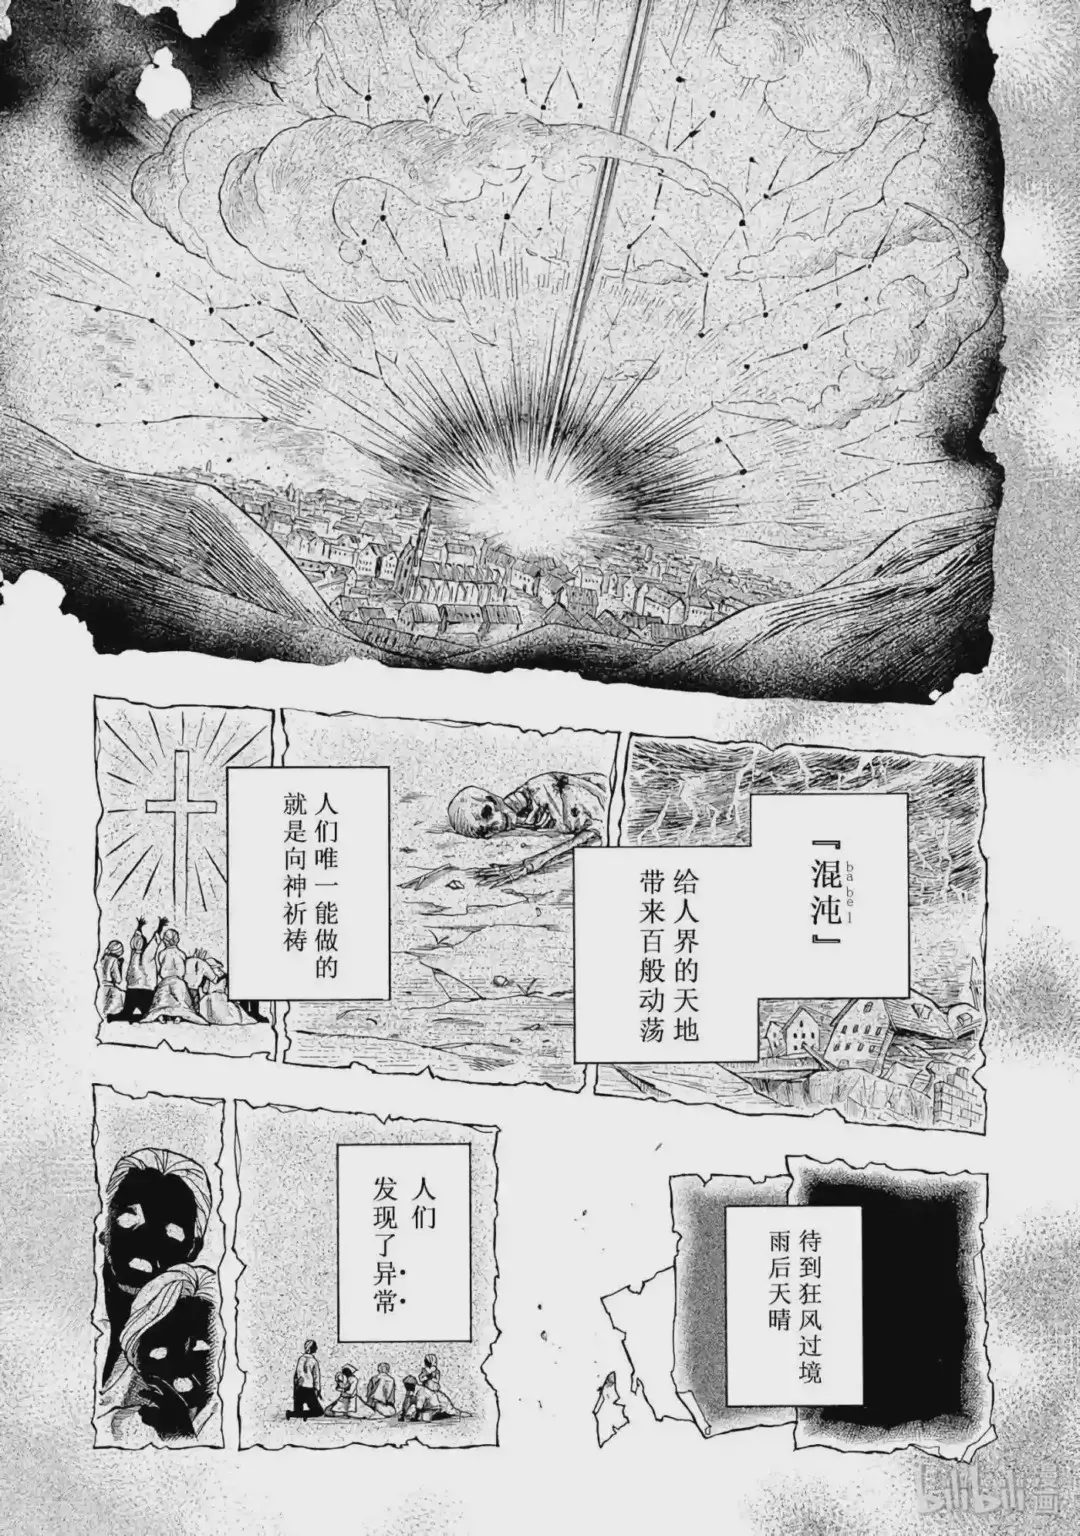 『混沌』
babel
给人界的天地
带来百般动荡
人们唯一能做的
就是向神祈祷
待到狂风过境
雨后天晴
人们
发现了异常
bilibili
漫画